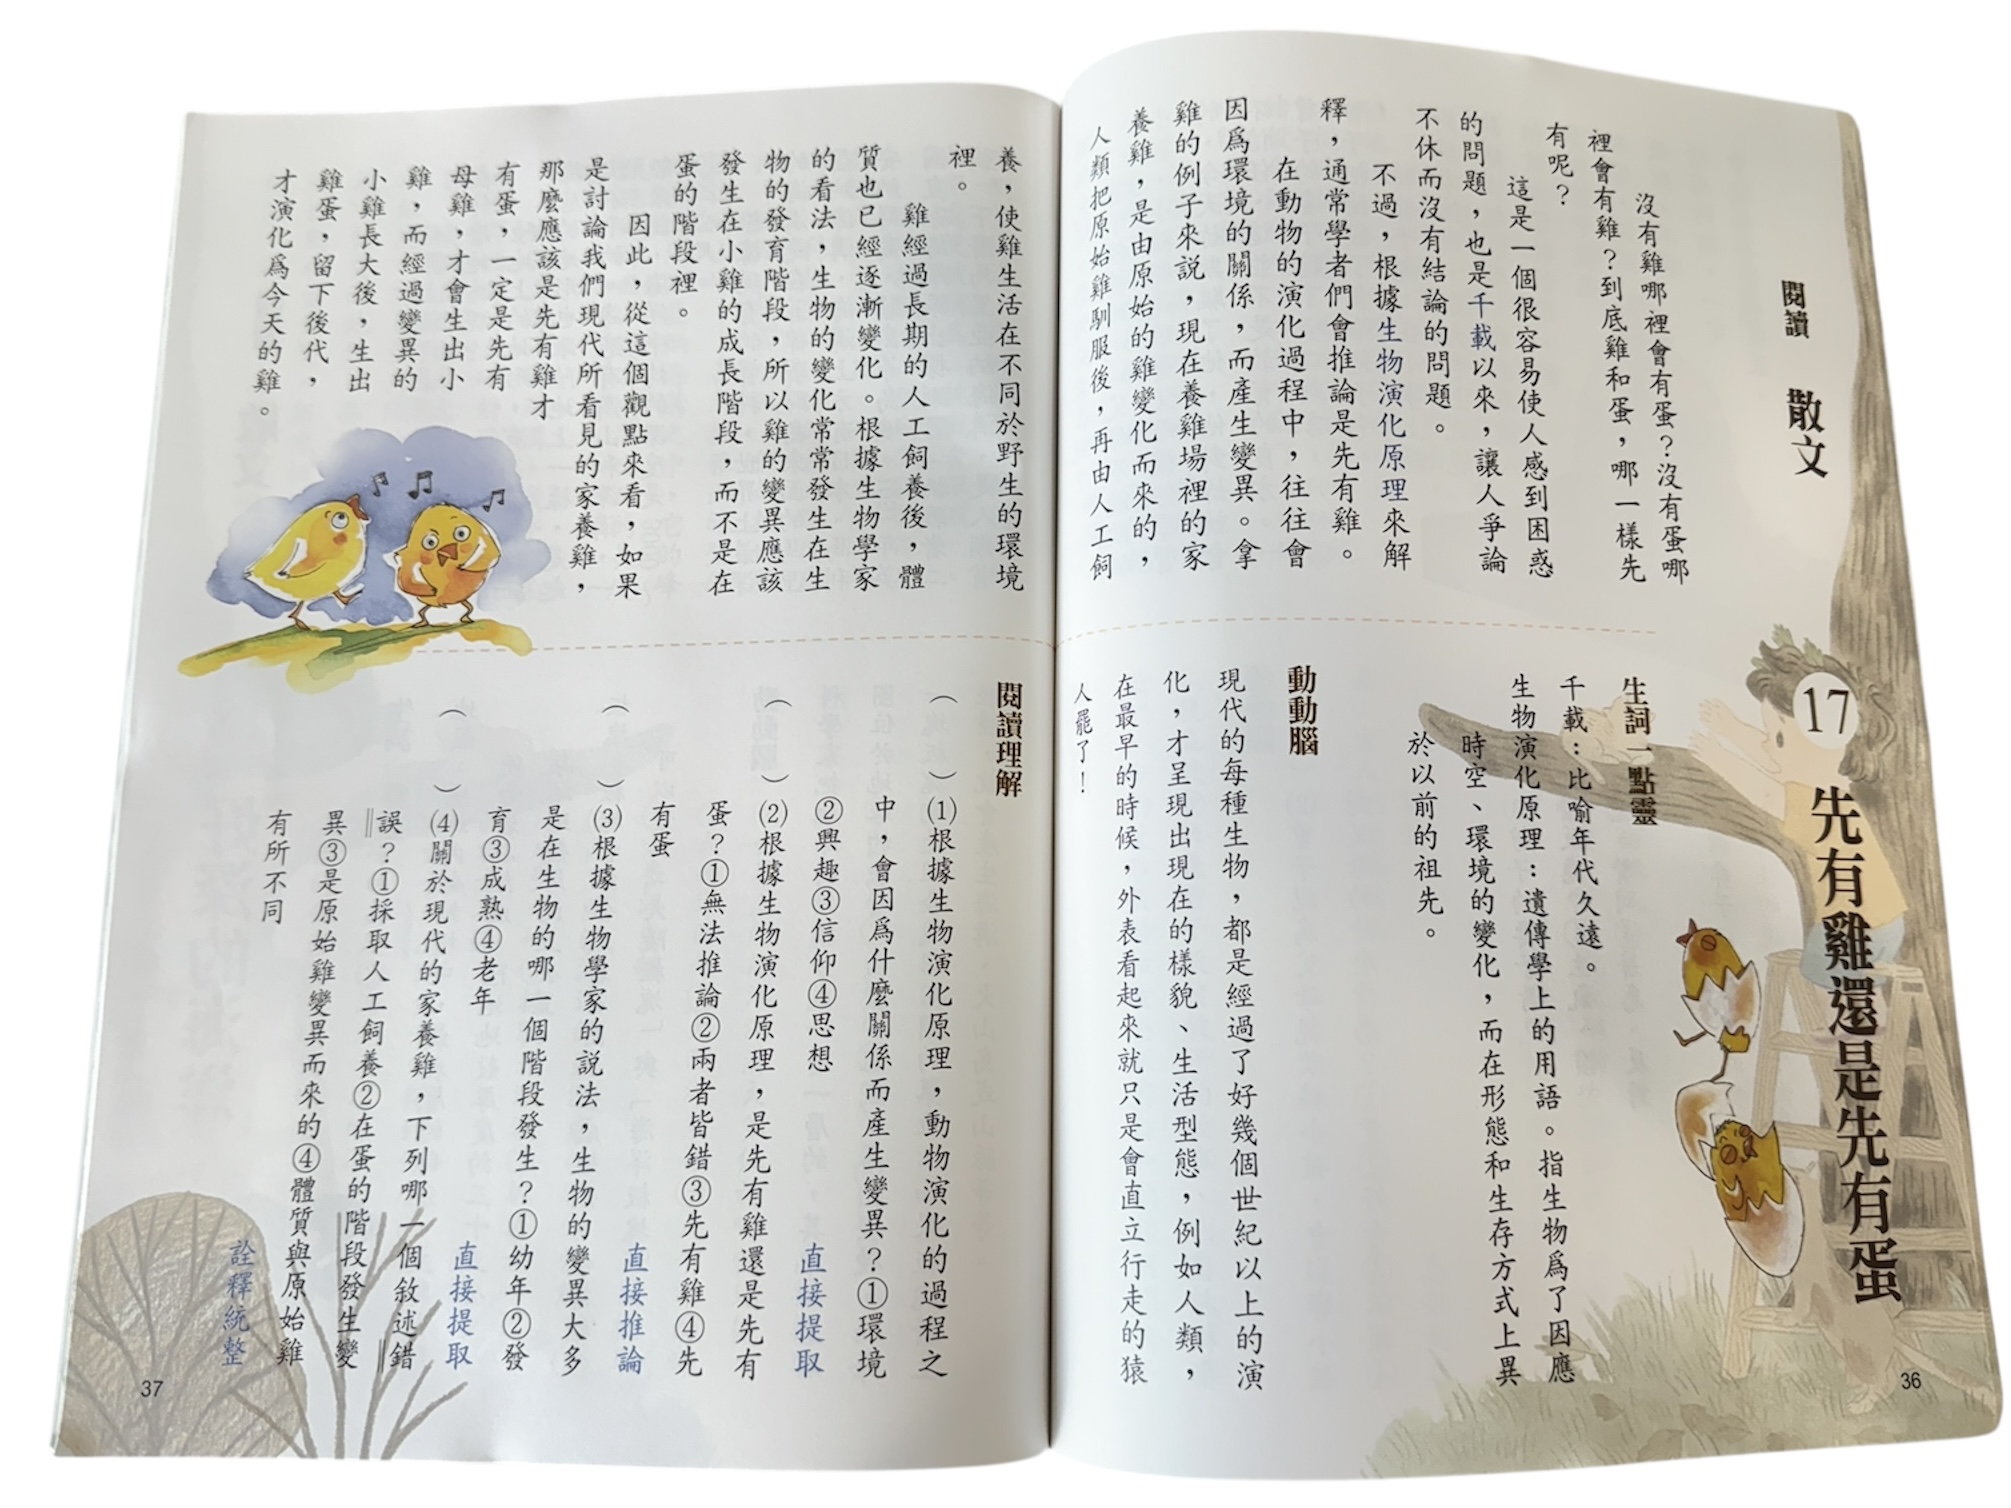 閱讀 散文
17 先有雞還是先有蛋
沒有雞哪裡會有蛋?沒有蛋哪
裡會有雞?到底雞和蛋,哪一樣先
有呢?
這是一個很容易使人感到困惑
的問題,也是千載以來,讓人爭論
不休而沒有結論的問題。
不過,根據生物演化原理來解
釋,通常學者們會推論是先有雞。
在動物的演化過程中,往往會
因為環境的關係,而產生變異。拿
雞的例子來說,現在養雞場裡的家
養雞,是由原始的雞變化而來的,
人類把原始雞馴服後,再由人工飼
生詞一點靈
千載:比喻年代久遠。
生物演化原理:遺傳學上的用語。指生物為了因應
時空、環境的變化,而在形態和生存方式上異
於以前的祖先。
動動腦
現代的每種生物,都是經過了好幾個世紀以上的演
化,才呈現出現在的樣貌、生活型態,例如人類,
在最早的時候,外表看起來就只是會直立行走的猿
人罷了!
36
養,使雞生活在不同於野生的環境
裡。
雞經過長期的人工飼養後,體
質也已經逐漸變化。根據生物學家
的看法,生物的變化常常發生在生
物的發育階段,所以雞的變異應該
發生在小雞的成長階段,而不是在
蛋的階段裡。
因此,從這個觀點來看,如果
是討論我們現代所看見的家養雞,
那麼應該是先有雞才
有蛋,一定是先有
母雞,才會生出小
雞,而經過變異的
小雞長大後,生出
雞蛋,留下後代,
才演化為今天的雞。
閱讀理解
( )⑴根據生物演化原理,動物演化的過程之
中,會因為什麼關係而產生變異?①環境
②興趣③信仰④思想 直接提取
( )⑵根據生物演化原理,是先有雞還是先有
蛋?①無法推論②兩者皆錯③先有雞④先
有蛋 直接推論
( )⑶根據生物學家的說法,生物的變異大多
是在生物的哪一個階段發生?①幼年②發
育③成熟④老年 直接提取
( )⑷關於現代的家養雞,下列哪一個敘述錯
誤?①採取人工飼養②在蛋的階段發生變
異③是原始雞變異而來的④體質與原始雞
有所不同 詮釋統整
37